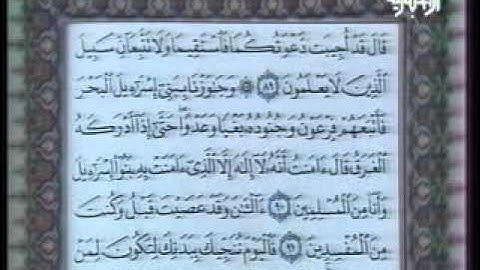 قَالَ قَدْ أُجِيبَت دَّعْوَتُكُمَا فَٱسْتَقِيمَا وَلَا تَتَّبِعَآنِّ سَبِيلَ
ٱلَّذِينَ لَا يَعْلَمُونَ ٨٩ ۞ وَجَٰوَزْنَا بِبَنِىٓ إِسْرَٰٓءِيلَ ٱلْبَحْرَ
فَأَتْبَعَهُمْ فِرْعَوْنُ وَجُنُودُهُۥ بَغْيًا وَعَدْوًا حَتَّىٰٓ إِذَآ أَدْرَكَهُ
ٱلْغَرَقُ قَالَ ءَامَنتُ أَنَّهُۥ لَآ إِلَٰهَ إِلَّا ٱلَّذِىٓ ءَامَنَتْ بِهِۦ بَنُوٓا۟ إِسْرَٰٓءِيلَ
وَأَنَا۠ مِنَ ٱلْمُسْلِمِينَ ٩٠ ءَآلْـَٰٔنَ وَقَدْ عَصَيْتَ قَبْلُ وَكُنتَ
مِنَ ٱلْمُفْسِدِينَ ٩١ فَٱلْيَوْمَ نُنَجِّيكَ بِبَدَنِكَ لِتَكُونَ لِمَنْ